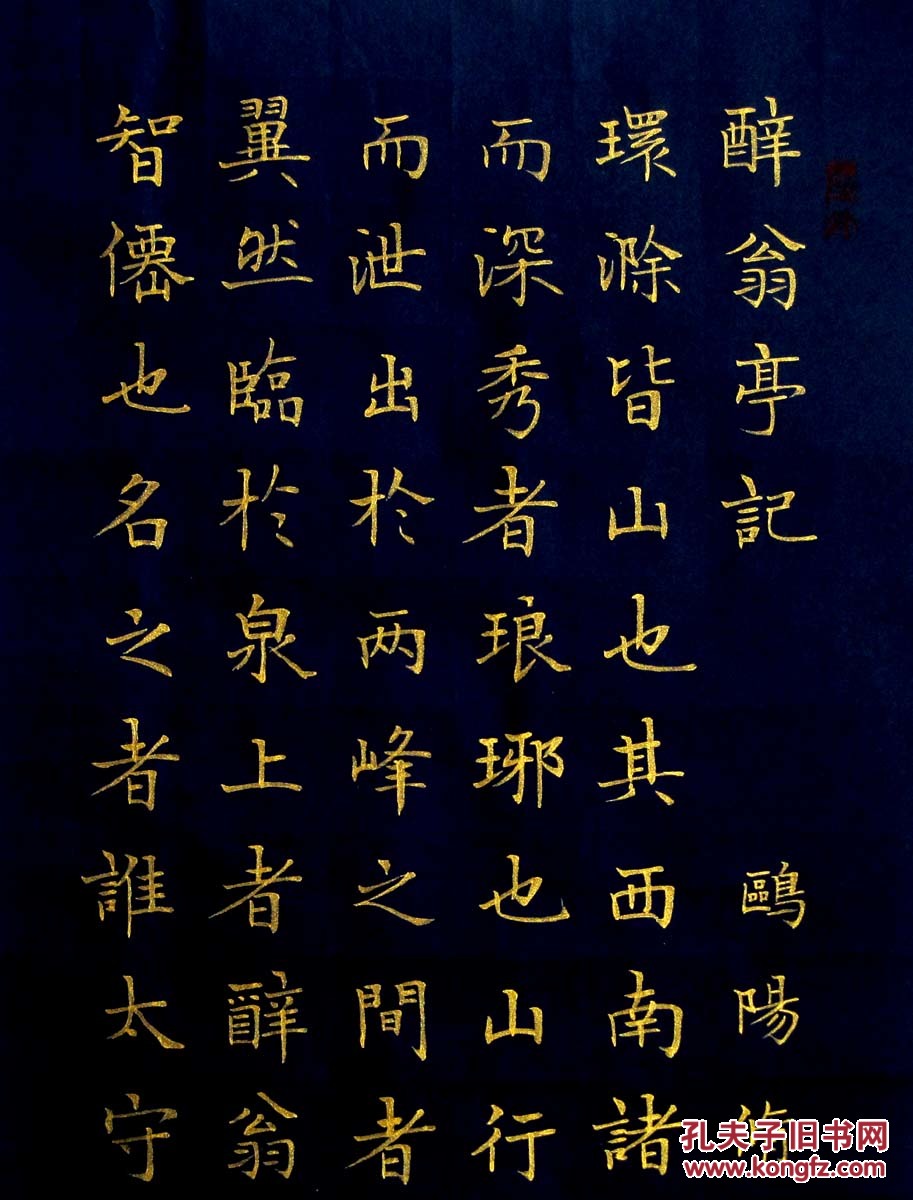 醉翁亭記 鷗陽
環滁皆山也其西南諸
而深秀者琅琊也山行
而泄出於两峰之間者
翼然臨於泉上者醉翁
智僊也名之者誰太守
孔夫子旧书网
www.kongfz.com